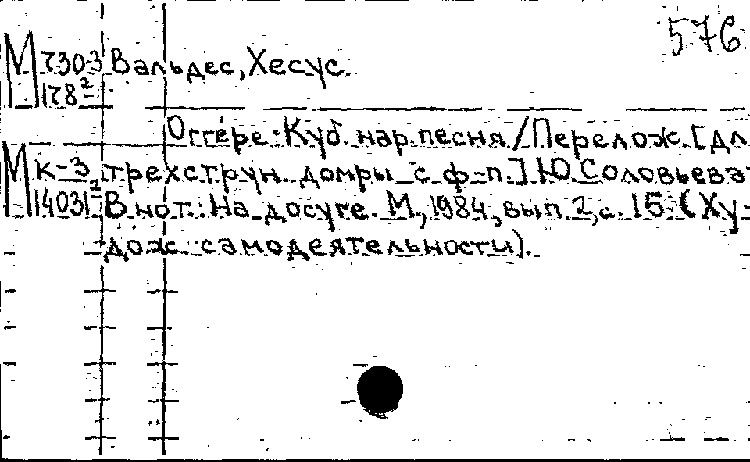 576
М 7303 Вальдес, Хесус.
178²
Оггере: Куб. нар. песня /Перелож. [дл
М к-3 трехструн. домры с ф-п.] Ю. Соловьева-
14031² В нот.: На досуге. М., 1984, вып. 2, с. 15. (Ху-
дож. самодеятельности).